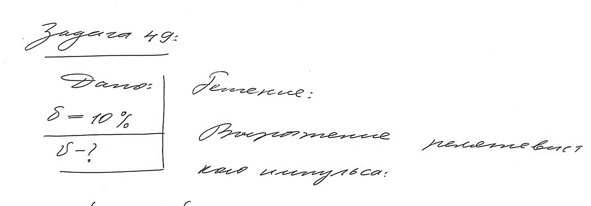 Задача 49:
Дано:
Решение:
δ = 10%
Выражение релятевист
υ - ?
кого импульса: